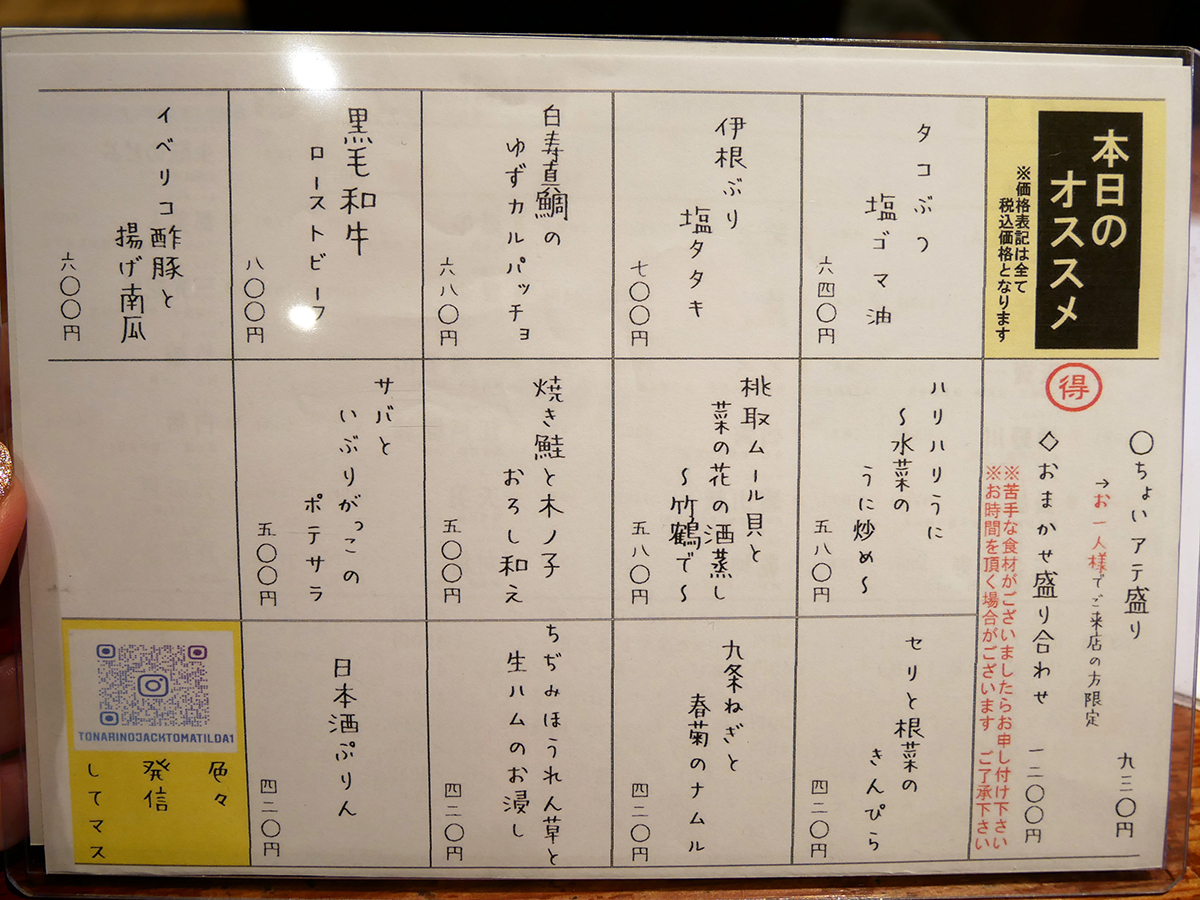 本日の
オススメ
※価格表記は全て
税込価格となります
タコぶつ
塩ゴマ油
六四〇円
伊根ぶり
塩タタキ
七〇〇円
白寿真鯛の
ゆずカルパッチョ
六八〇円
黒毛和牛
ローストビーフ
八〇〇円
イベリコ酢豚と
揚げ南瓜
六〇〇円
得
〇ちょいアテ盛り
九三〇円
→お一人様でご来店の方限定
◇おまかせ盛り合わせ
一二〇〇円
※苦手な食材がございましたらお申し付け下さい
※お時間を頂く場合がございます ご了承下さい
ハリハリうに
～水菜の
うに炒め～
五八〇円
桃取ムール貝と
菜の花の酒蒸し
～竹鶴で～
五八〇円
焼き鮭と木ノ子
おろし和え
五〇〇円
サバと
いぶりがっこの
ポテサラ
五〇〇円
セリと根菜の
きんぴら
四二〇円
九条ねぎと
春菊のナムル
四二〇円
ちぢみほうれん草と
生ハムのお浸し
四二〇円
日本酒ぷりん
四二〇円
TONARINOJACKTOMATILDA1
色々
発信
してマス